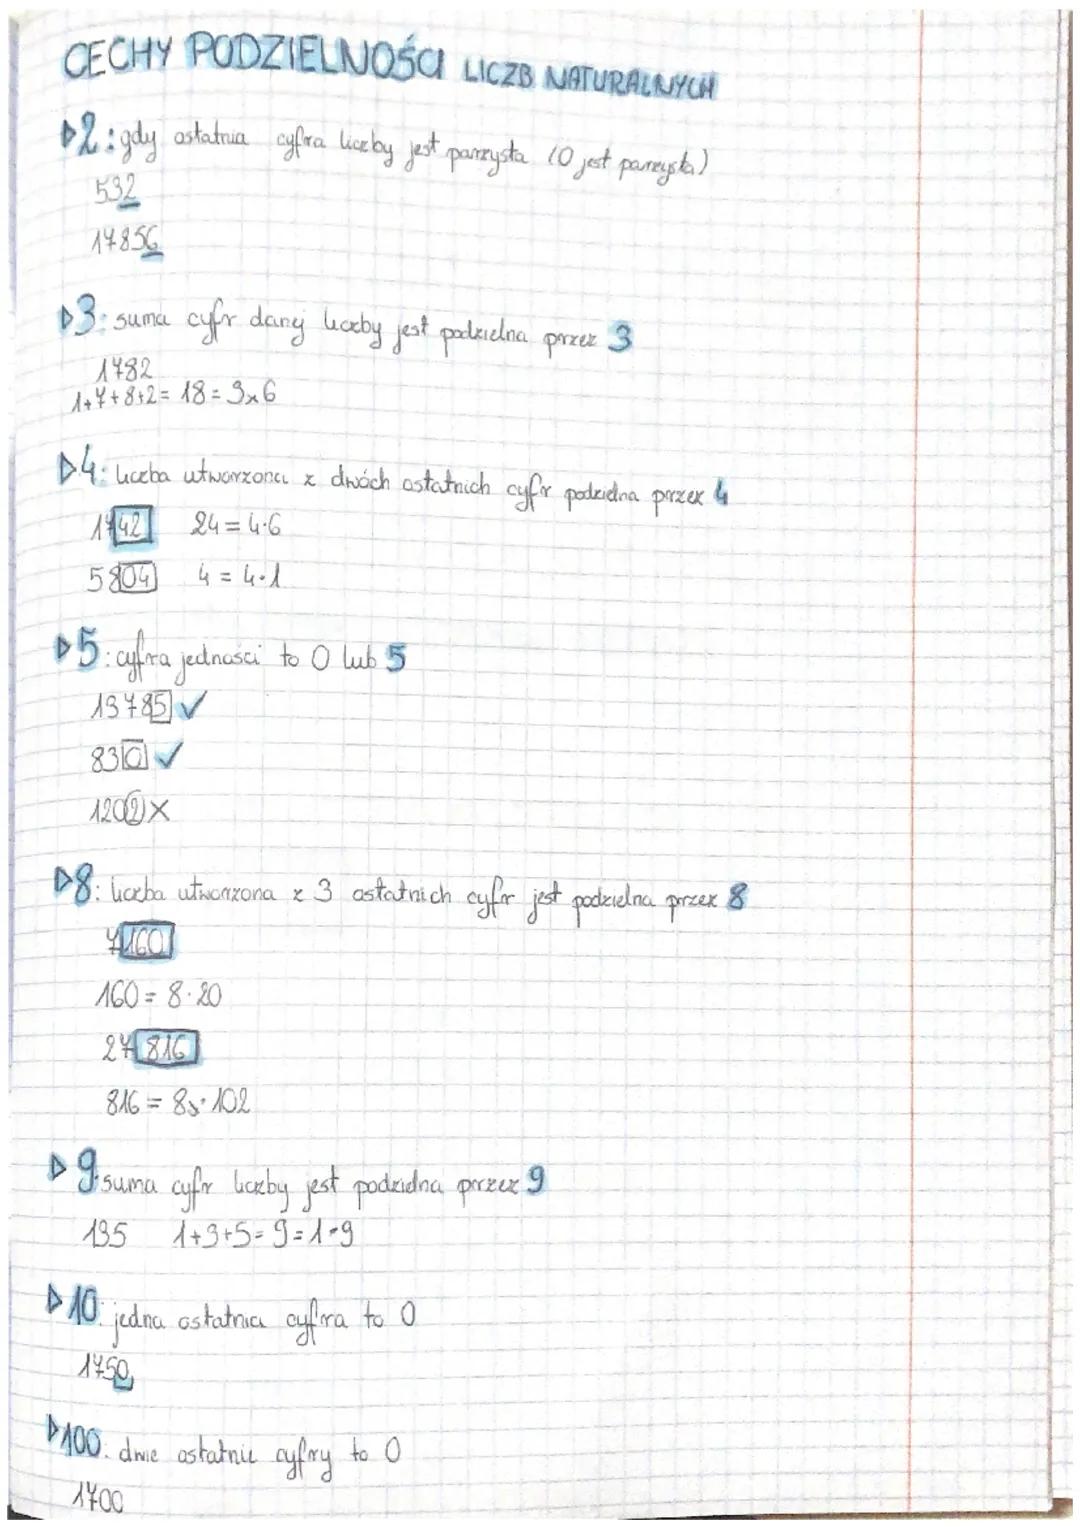 CECHY PODZIELNOŚCI LICZB NATURALNYCH
▷2: gdy ostatnia cyfra liczby jest parzysta (0 jest parzysta)
532
17856
▷3: suma cyfr danej liczby jest podzielna przez 3
1782
1+7+8+2= 18 = 3x6
▷4: liczba utworzona z dwóch ostatnich cyfr podzielna przez 4
1742 24 = 4·6
5804 4 = 4·1
▷5: cyfra jedności to 0 lub 5
13785 ✓
830 ✓
1202 X
▷8: liczba utworzona z 3 ostatnich cyfr jest podzielna przez 8
7160
160 = 8·20
27816
816 = 8·102
▷9: suma cyfr liczby jest podzielna przez 9
135 1+3+5= 9 = 1·9
▷10: jedna ostatnia cyfra to 0
1750
▷100: dwie ostatnie cyfry to 0
1700